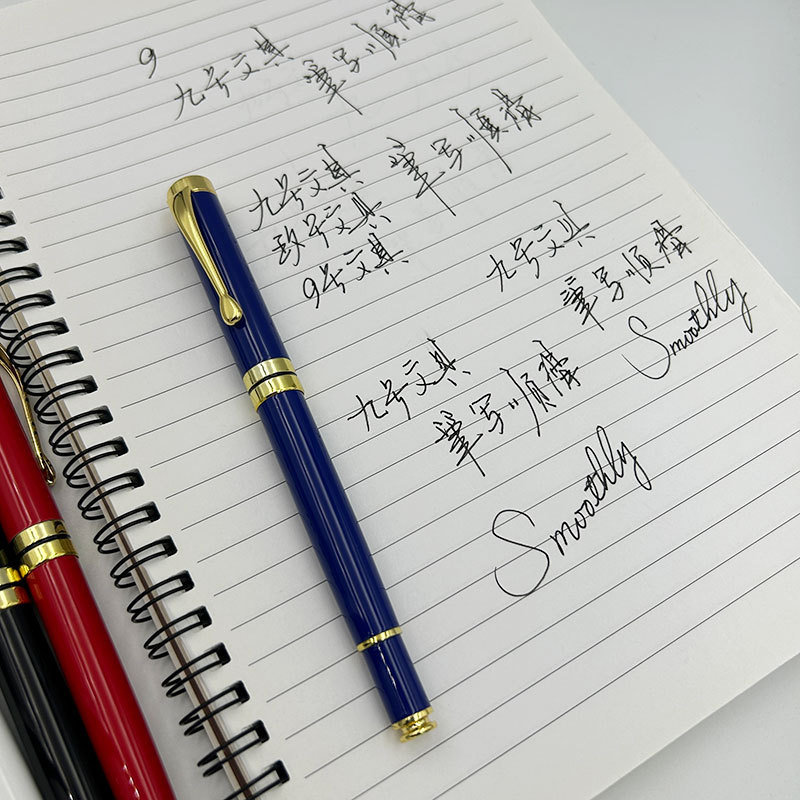 9
九号文具 筆写顺滑
九号文具 筆写顺滑
玖号文具
9号文具
九号文具
筆写顺滑
Smoothly
九号文具
筆写顺滑
Smoothly